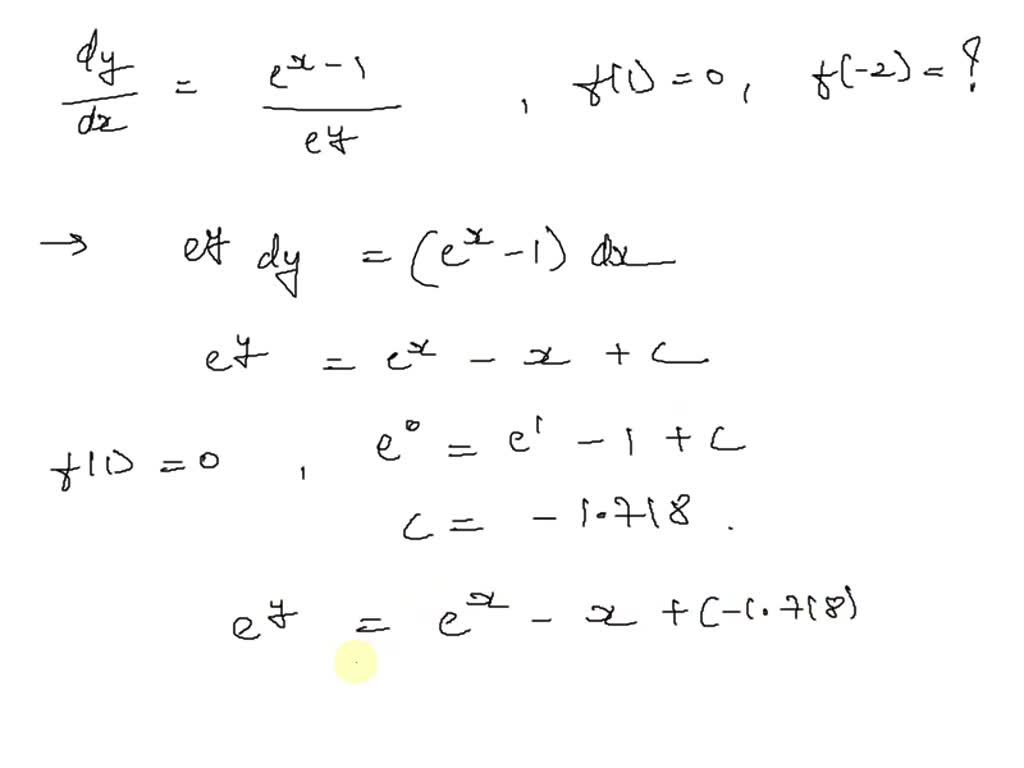 dy/dx = (e^x - 1)/e^y , f(1) = 0, f(-2) = ?
→ e^y dy = (e^x - 1) dx
e^y = e^x - x + c
f(1) = 0 , e^0 = e^1 - 1 + c
c = - 1.718 .
e^y = e^x - x + (-1.718)